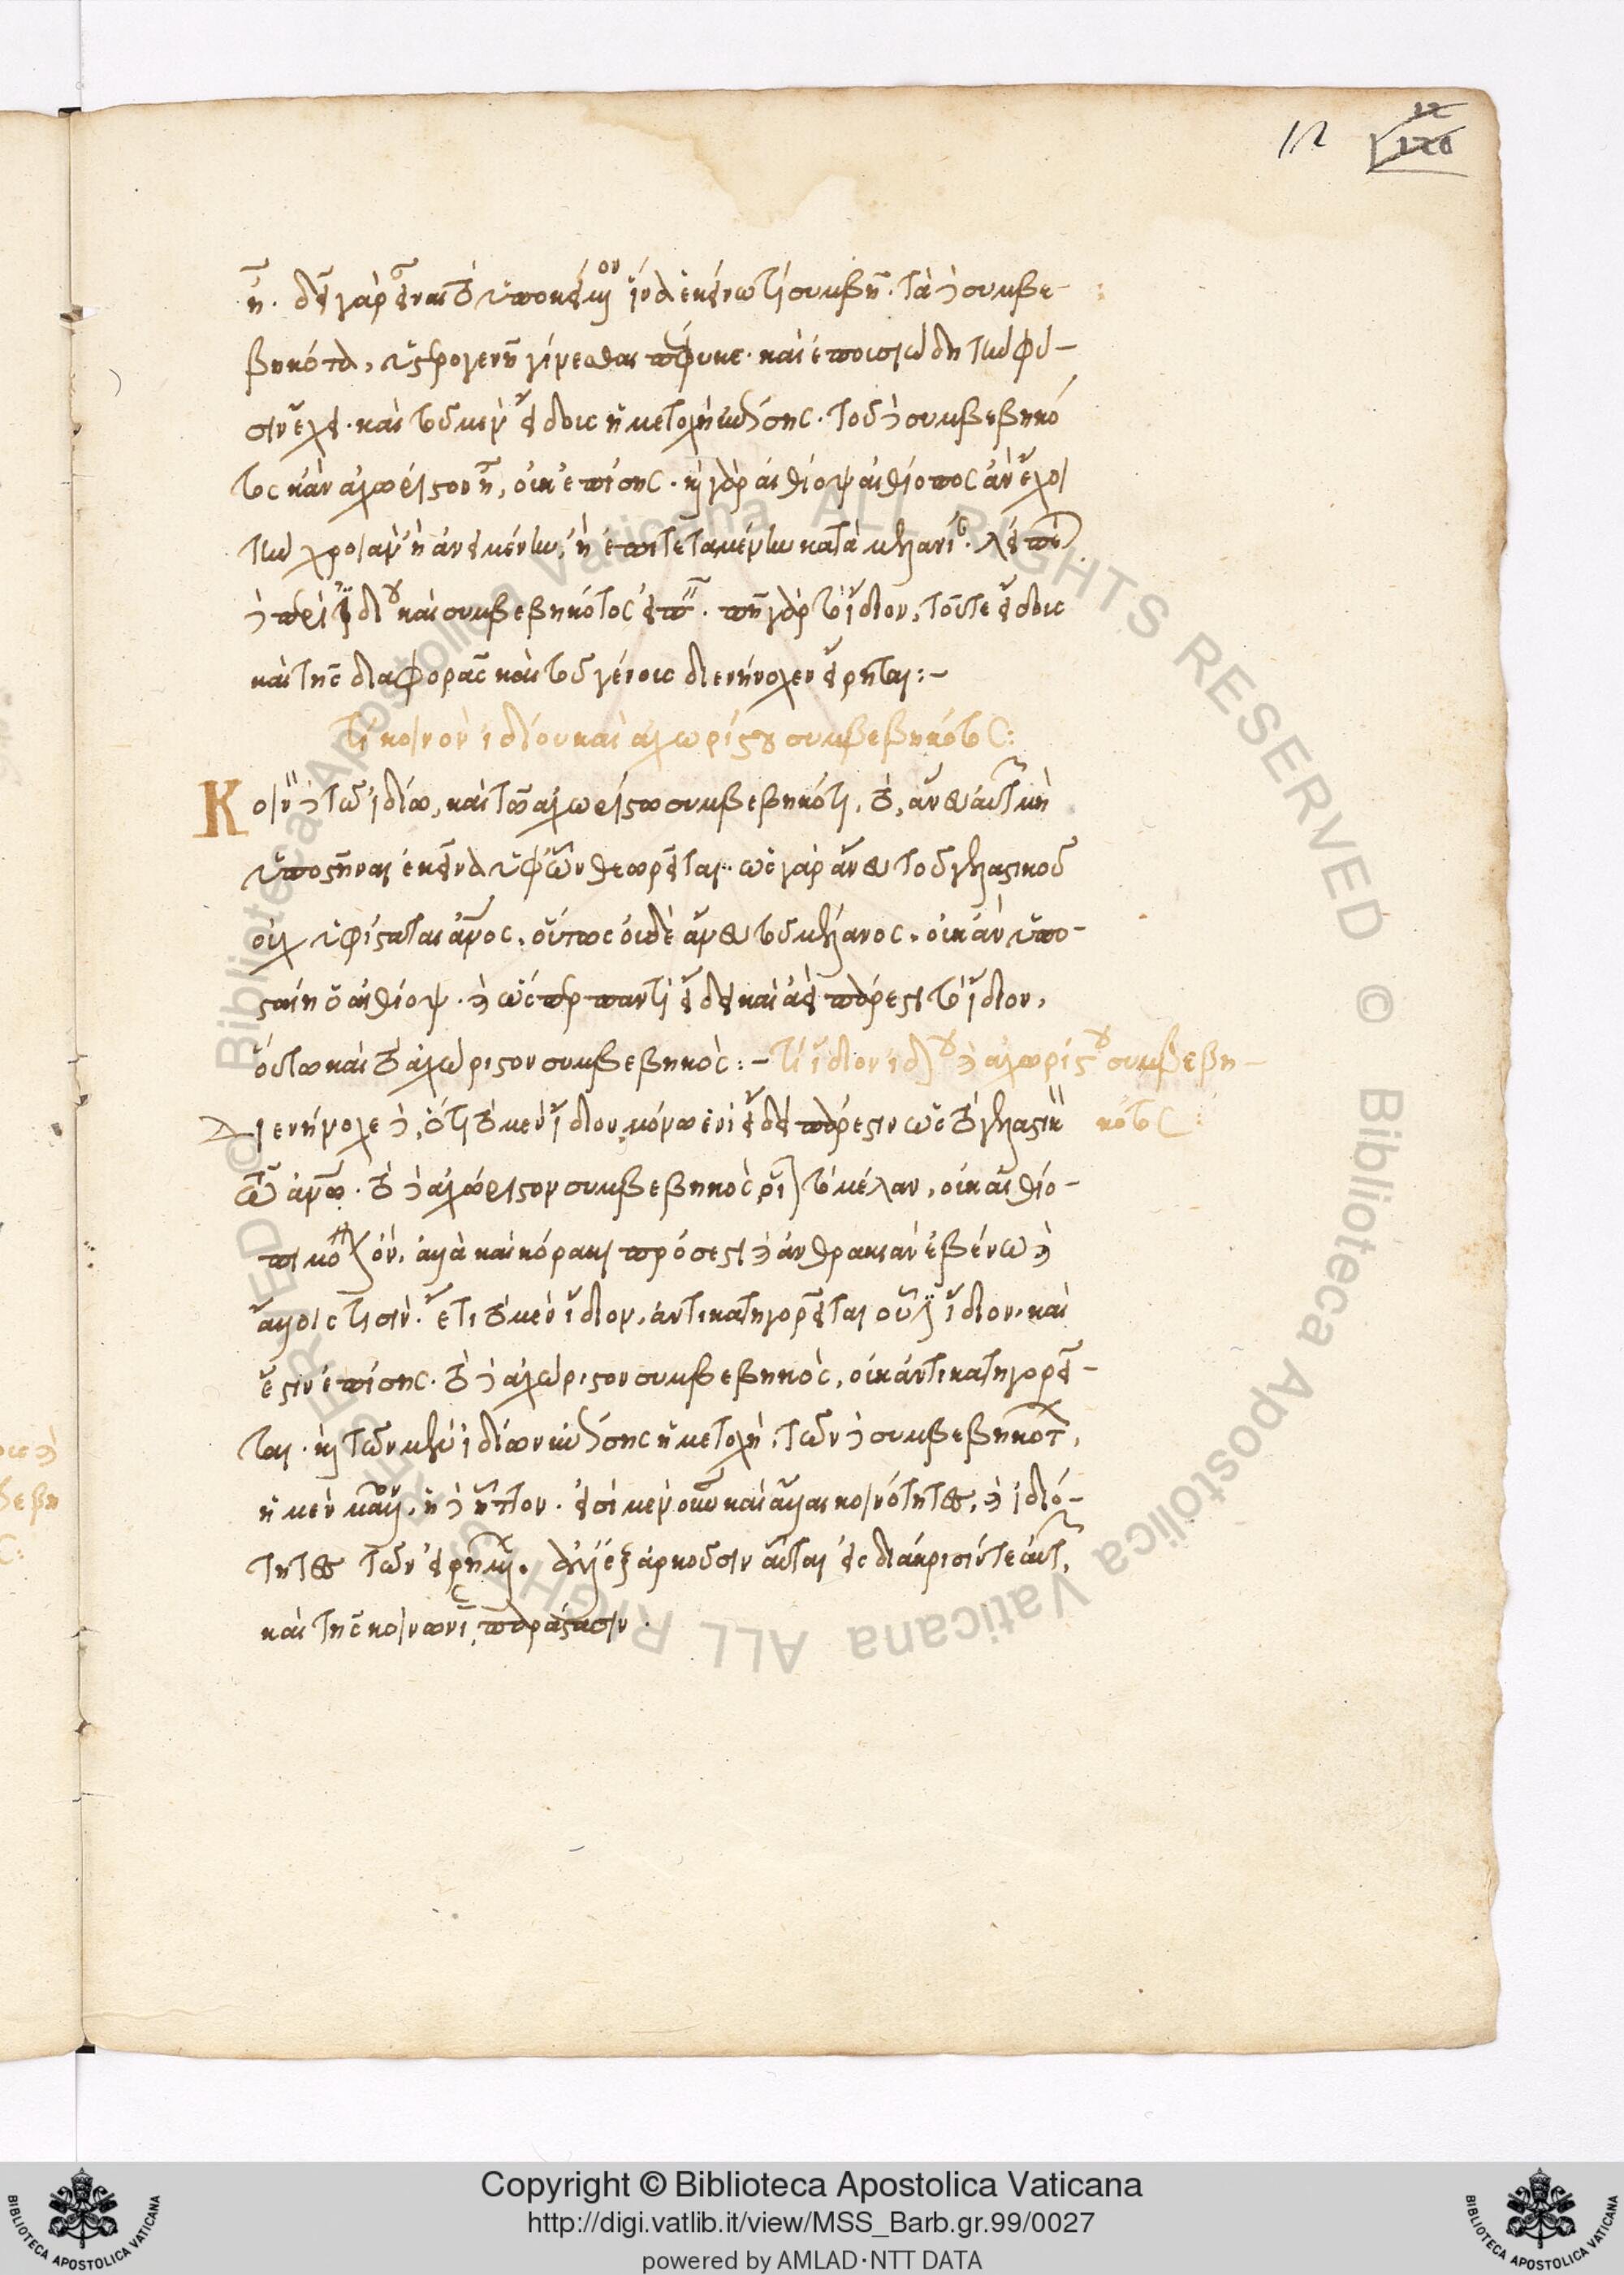 12
ἦ. δεῖ γὰρ εἶναι τὸ ὑποκείμενον ἵνα ἐκείνω τί συμβῆ. τὰ δὲ συμβε-
βηκότα, ὑστερογενῆ γίνεσθαι πέφυκε. καὶ ἐπεισοδιώδη τὴν φύ-
σιν ἔχει. καὶ τοῦ μὲν εἴδους ἡ μετοχὴ ἐπίσης. τοῦ δὲ συμβεβηκό
τος κἂν ἀχώριστον ἦ, οὐκ ἐπίσης. καὶ γὰρ αἰθίοψ αἰθίοπος ἂν ἔχοι
τὴν χροιὰν ἢ ἀνειμένην, ἢ ἐπιτεταμένην κατὰ μελανίαν. λείπεται
δὲ περὶ ἰδίου καὶ συμβεβηκότος εἰπεῖν. πῆ γὰρ τὸ ἴδιον, τοῦ τε εἴδους
καὶ τῆς διαφορᾶς καὶ τοῦ γένους διενήνοχεν εἴρηται:-
Τί κοινὸν ἰδίου καὶ ἀχωρίστου συμβεβηκότος:
Κοινὸν δὲ τῶ ἰδίω, καὶ τῶ ἀχωρίστω συμβεβηκότι, τὸ, ἄνευ αὐτῶν μὴ
ὑποστῆναι ἐκεῖνα ὑφ' ὧν θεωρεῖται. ὡς γὰρ ἄνευ τοῦ γελαστικοῦ
οὐχ ὑφίσταται ἄνος. οὕτως οὐδὲ ἄνευ τοῦ μέλανος. οὐκ ἂν ὑπο-
σταίη ὁ αἰθίοψ. καὶ ὥσπερ παντὶ εἴδει καὶ ἀεὶ πάρεστι τὸ ἴδιον,
οὕτω καὶ τὸ ἀχώριστον συμβεβηκός:- Τί ἴδιον ἰδίου καὶ ἀχωρίστου συμβεβη-
κότος:
Διενήνοχε δὲ, ὅτι τὸ μὲν ἴδιον μόνω ἑνὶ εἴδει πάρεστιν ὡς τὸ γελαστικὸν
τῶ ἀνω. τὸ δὲ ἀχώριστον συμβεβηκὸς οἷον τὸ μέλαν, οὐκ αἰθίο-
πι μόνον, ἀλλὰ καὶ κόρακι πρόσεστι καὶ ἄνθρακι καὶ ἐβένω καὶ
ἄλλοις τισίν. ἔτι τὸ μὲν ἴδιον, ἀντικατηγορεῖται οὗ ἐστιν ἴδιον. καὶ
ἔστιν ἐπίσης. τὸ δὲ ἀχώριστον συμβεβηκὸς, οὐκ ἀντικατηγορεῖ-
ται. καὶ τῶν μὲν ἰδίων ἐπίσης ἡ μετοχὴ, τῶν δὲ συμβεβηκότων,
ἡ μὲν μᾶλλον, ἡ δὲ ἧττον. εἰσὶ μὲν οὖν καὶ ἄλλαι κοινότητες, καὶ ἰδιό-
τητες τῶν εἰρημένων. ἀλλ' ἐξαρκοῦσιν αὗται εἰς διάκρισίν τε αὐτῶν,
καὶ τῆς κοινωνίας παράστασιν.
Copyright © Biblioteca Apostolica Vaticana
http://digi.vatlib.it/view/MSS_Barb.gr.99/0027
powered by AMLAD·NTT DATA